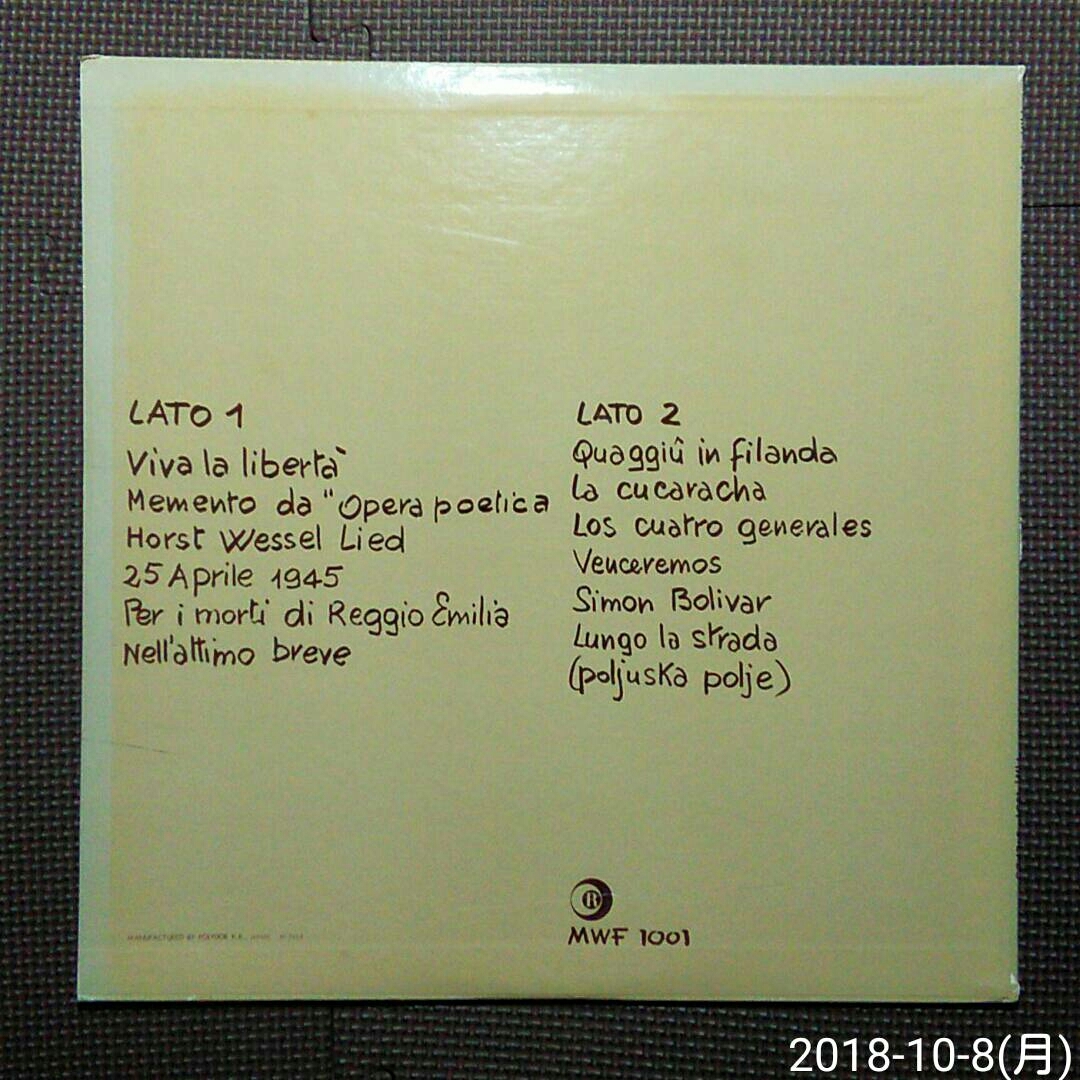 LATO 1
Viva la libertà
Memento da "Opera poetica
Horst Wessel Lied
25 Aprile 1945
Per i morti di Reggio Emilia
Nell'attimo breve
LATO 2
Quaggiû in filanda
La cucaracha
Los cuatro generales
Venceremos
Simon Bolivar
Lungo la strada
(poljuska polje)
R
MWF 1001
MANUFACTURED BY POLYDOR K.K., JAPAN
2018-10-8(月)